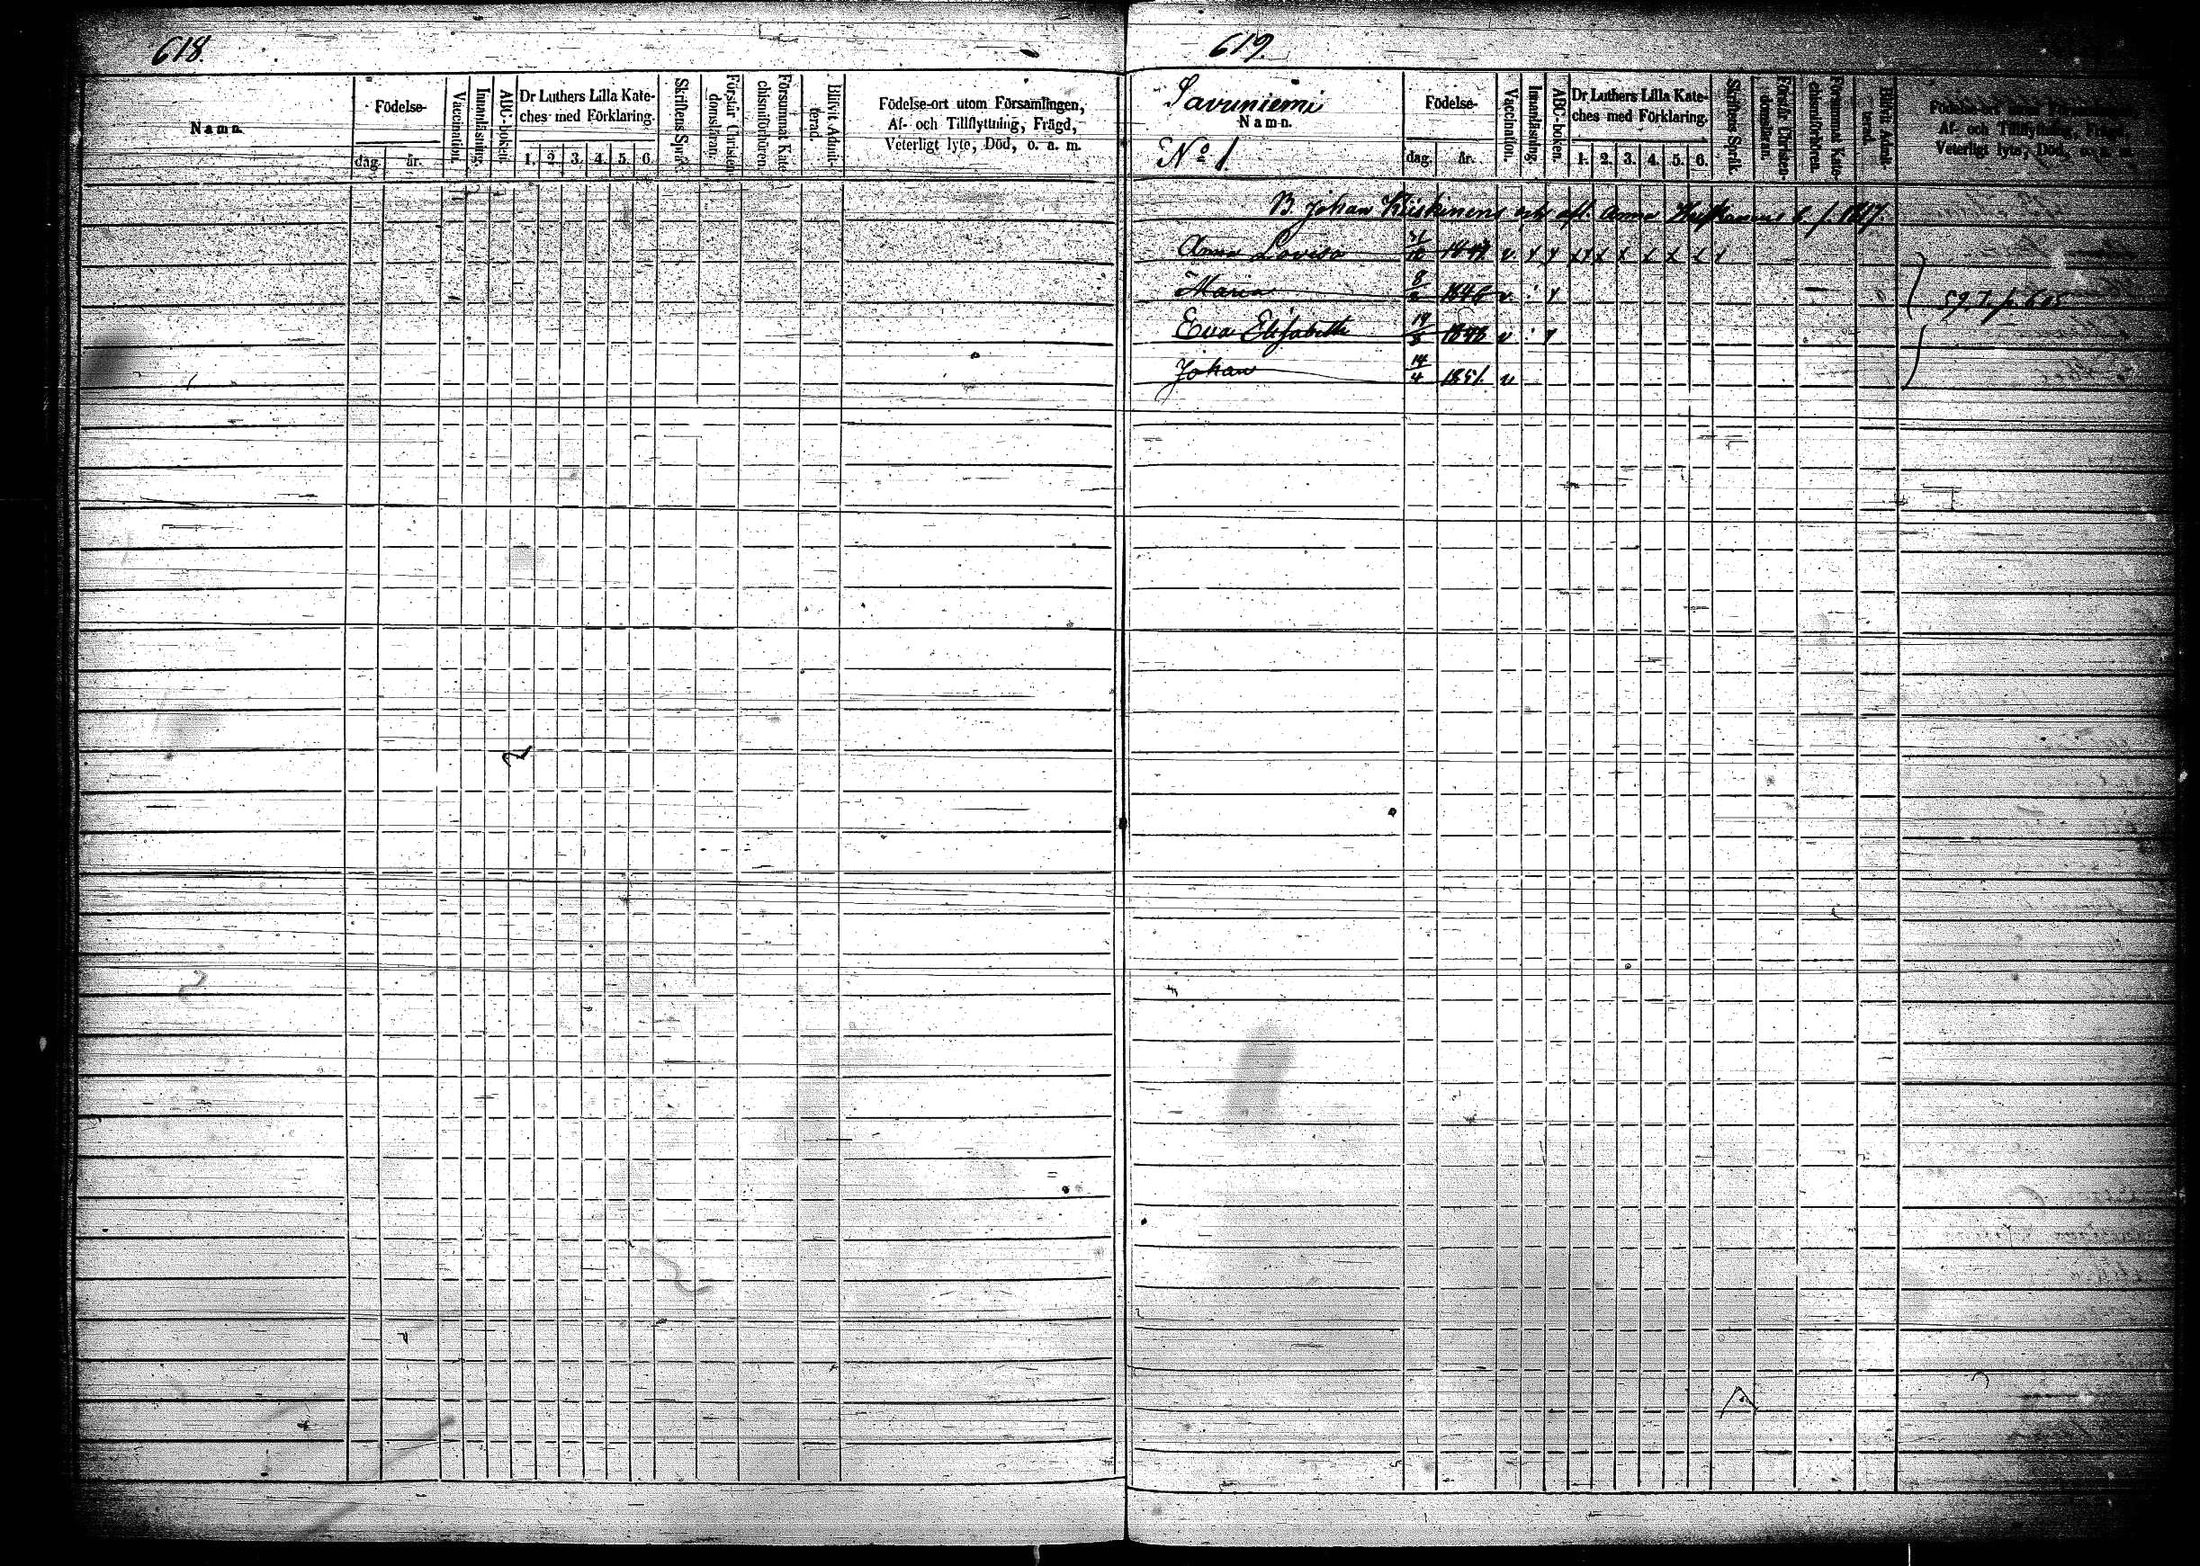 618.
Namn.
Födelse-
dag.
år.
Vaccination.
Innanläsning.
ABC-boken.
Dr Luthers Lilla Kate-
ches med Förklaring.
1. 2. 3. 4. 5. 6.
Skriftens Språk.
Förstår Christen-
domsläran.
Försummat Kate-
chismiförhören.
Blifvit Admit-
terad.
Födelse-ort utom Församlingen,
Af- och Tillflyttning, Frägd,
Veterligt lyte, Död, o. a. m.
619.
Savuniemi
Namn.
No 1.
Födelse-
dag.
år.
Vaccination.
Innanläsning.
ABC-boken.
Dr Luthers Lilla Kate-
ches med Förklaring.
1. 2. 3. 4. 5. 6.
Skriftens Språk.
Förstår Christen-
domsläran.
Försummat Kate-
chismiförhören.
Blifvit Admit-
terad.
Födelse-ort utom Församlingen,
Af- och Tillflyttning, Frägd,
Veterligt lyte, Död, o. a. m.
B Johan och afl. Anna b. p. 617.
Anna Lovisa v.
Maria 8/2 1846 v.
Eva Elisabeth v
Johan 14/4 1851. v
597. p. 605